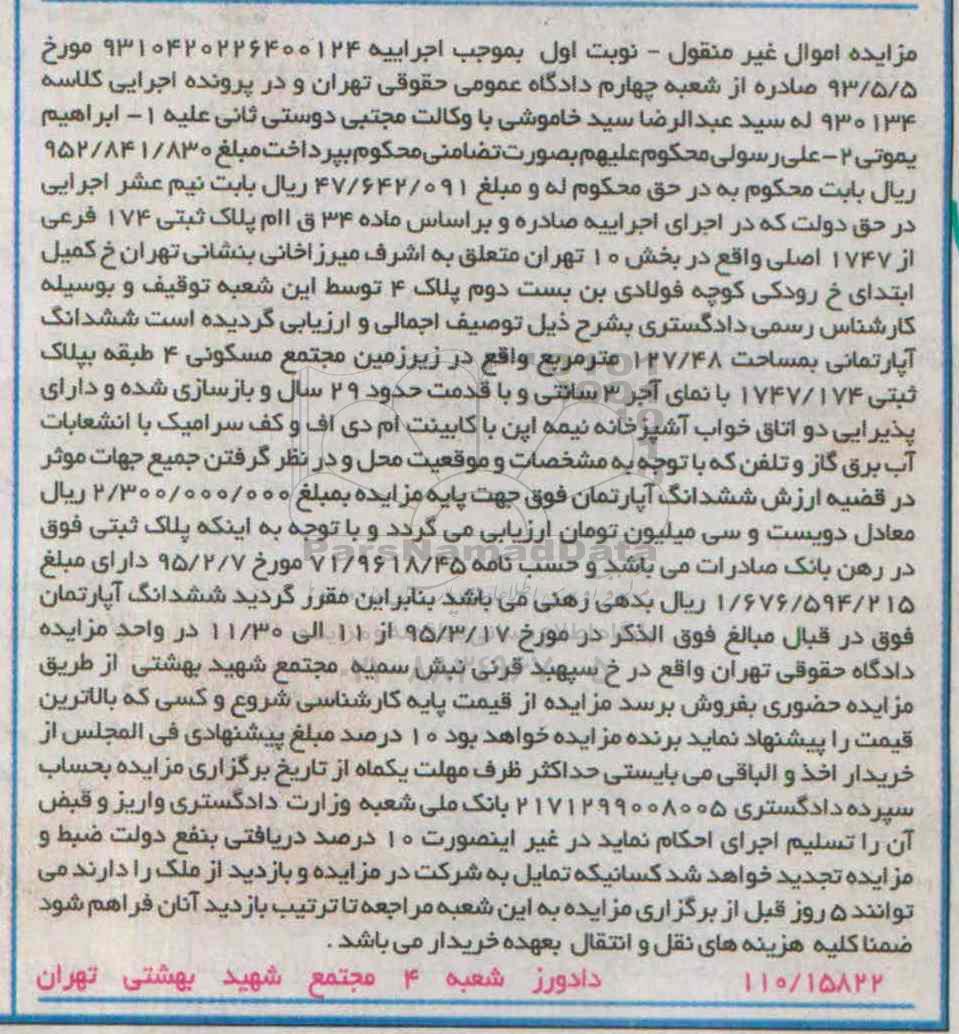 مزایده اموال غیر منقول - نوبت اول بموجب اجراییه ۹۳۱۰۴۲۰۲۲۶۴۰۰۱۲۴ مورخ
۹۳/۵/۵ صادره از شعبه چهارم دادگاه عمومی حقوقی تهران و در پرونده اجرایی کلاسه
۹۳۰۱۳۴ له سید عبدالرضا سید خاموشی با وکالت مجتبی دوستی ثانی علیه ۱- ابراهیم
یموتی ۲-علی رسولی محکوم علیهم بصورت تضامنی محکوم بپرداخت مبلغ ۹۵۲/۸۴۱/۸۳۰
ریال بابت محکوم به در حق محکوم له و مبلغ ۴۷/۶۴۲/۰۹۱ ریال بابت نیم عشر اجرایی
در حق دولت که در اجرای اجراییه صادره و بر اساس ماده ۳۴ ق اام پلاک ثبتی ۱۷۴ فرعی
از ۱۷۴۷ اصلی واقع در بخش ۱۰ تهران متعلق به اشرف میرزاخانی بنشانی تهران خ کمیل
ابتدای خ رودکی کوچه فولادی بن بست دوم پلاک ۴ توسط این شعبه توقیف و بوسیله
کارشناس رسمی دادگستری بشرح ذیل توصیف اجمالی و ارزیابی گردیده است ششدانگ
آپارتمانی بمساحت ۱۲۷/۴۸ مترمربع واقع در زیرزمین مجتمع مسکونی ۴ طبقه بپلاک
ثبتی ۱۷۴۷/۱۷۴ با نمای آجر ۳ سانتی و با قدمت حدود ۲۹ سال و بازسازی شده و دارای
پذیرایی دو اتاق خواب آشپزخانه نیمه اپن با کابینت ام دی اف و کف سرامیک با انشعابات
آب برق گاز و تلفن که با توجه به مشخصات و موقعیت محل و در نظر گرفتن جمیع جهات موثر
در قضیه ارزش ششدانگ آپارتمان فوق جهت پایه مزایده بمبلغ ۲/۳۰۰/۰۰۰/۰۰۰ ریال
معادل دویست و سی میلیون تومان ارزیابی می گردد و با توجه به اینکه پلاک ثبتی فوق
ParsNamadData
در رهن بانک صادرات می باشد و حسب نامه ۷۱/۹۶۱۸/۴۵ مورخ ۹۵/۲/۷ دارای مبلغ
۱/۶۷۶/۵۹۴/۲۱۵ ریال بدهی رهنی می باشد بنابراین مقرر گردید ششدانگ آپارتمان
فوق در قبال مبالغ فوق الذکر در مورخ ۹۵/۳/۱۷ از ۱۱ الی ۱۱/۳۰ در واحد مزایده
دادگاه حقوقی تهران واقع در خ سپهبد قرنی نبش سمیه مجتمع شهید بهشتی از طریق
مزایده حضوری بفروش برسد مزایده از قیمت پایه کارشناسی شروع و کسی که بالاترین
قیمت را پیشنهاد نماید برنده مزایده خواهد بود ۱۰ درصد مبلغ پیشنهادی فی المجلس از
خریدار اخذ و الباقی می بایستی حداکثر ظرف مهلت یکماه از تاریخ برگزاری مزایده بحساب
سپرده دادگستری ۲۱۷۱۲۹۹۰۰۸۰۰۵ بانک ملی شعبه وزارت دادگستری واریز و قبض
آن را تسلیم اجرای احکام نماید در غیر اینصورت ۱۰ درصد دریافتی بنفع دولت ضبط و
مزایده تجدید خواهد شد کسانیکه تمایل به شرکت در مزایده و بازدید از ملک را دارند می
توانند ۵ روز قبل از برگزاری مزایده به این شعبه مراجعه تا ترتیب بازدید آنان فراهم شود
ضمنا کلیه هزینه های نقل و انتقال بعهده خریدار می باشد .
۱۱۰/۱۵۸۲۲ دادورز شعبه ۴ مجتمع شهید بهشتی تهران